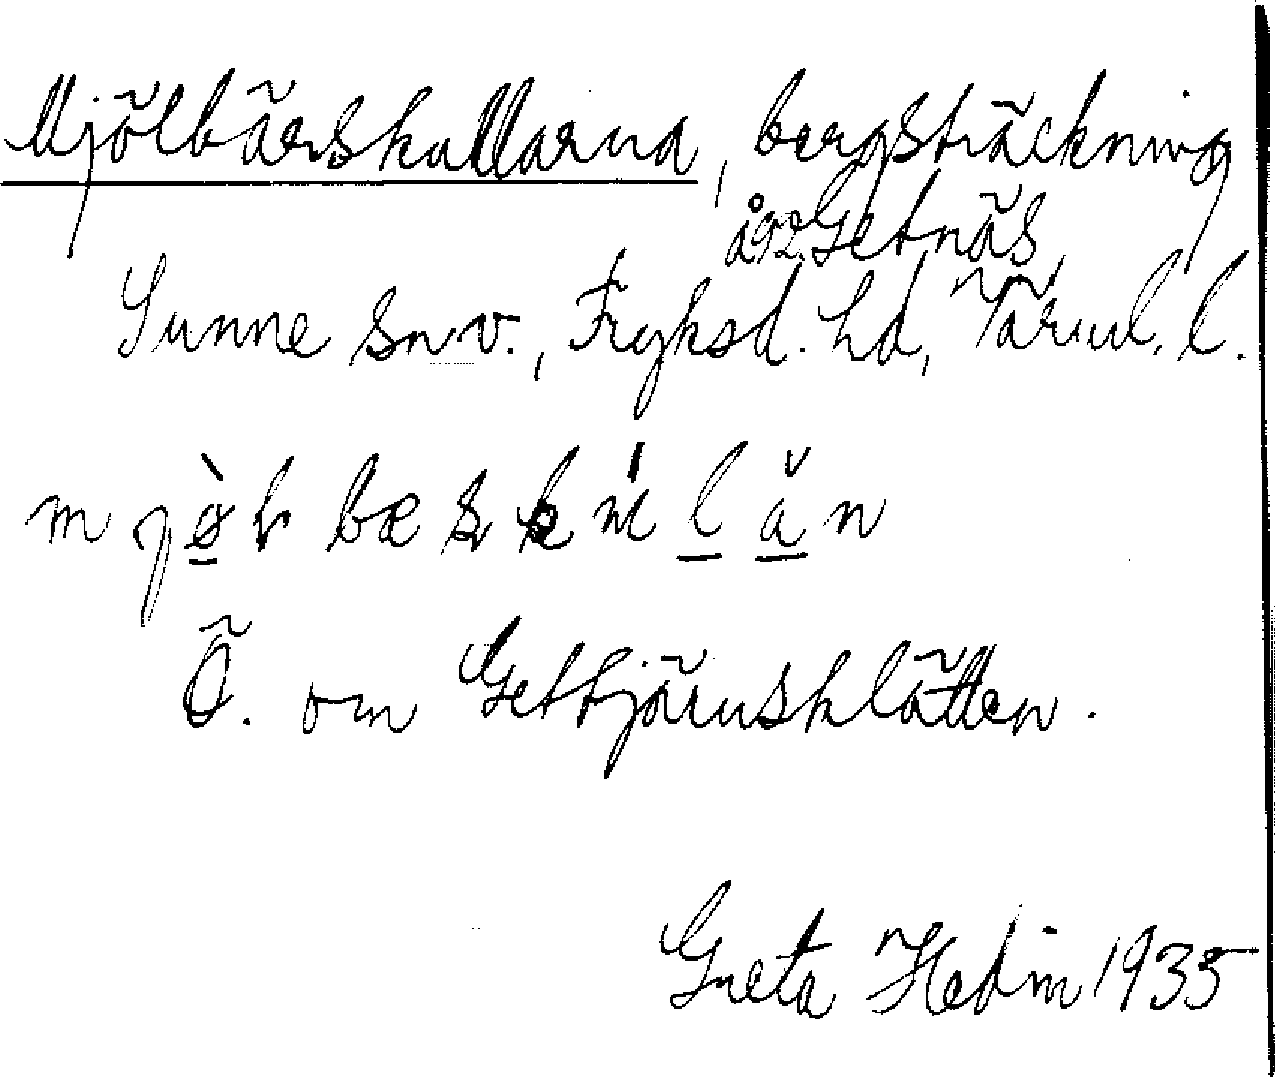 Mjölbärskallarna, bergsträckning
å Getnäs,
Sunne sn v., Fryksd. hd, Värml. l.
Ö. om Getkjärnsklätten.
Greta Hedin 1935